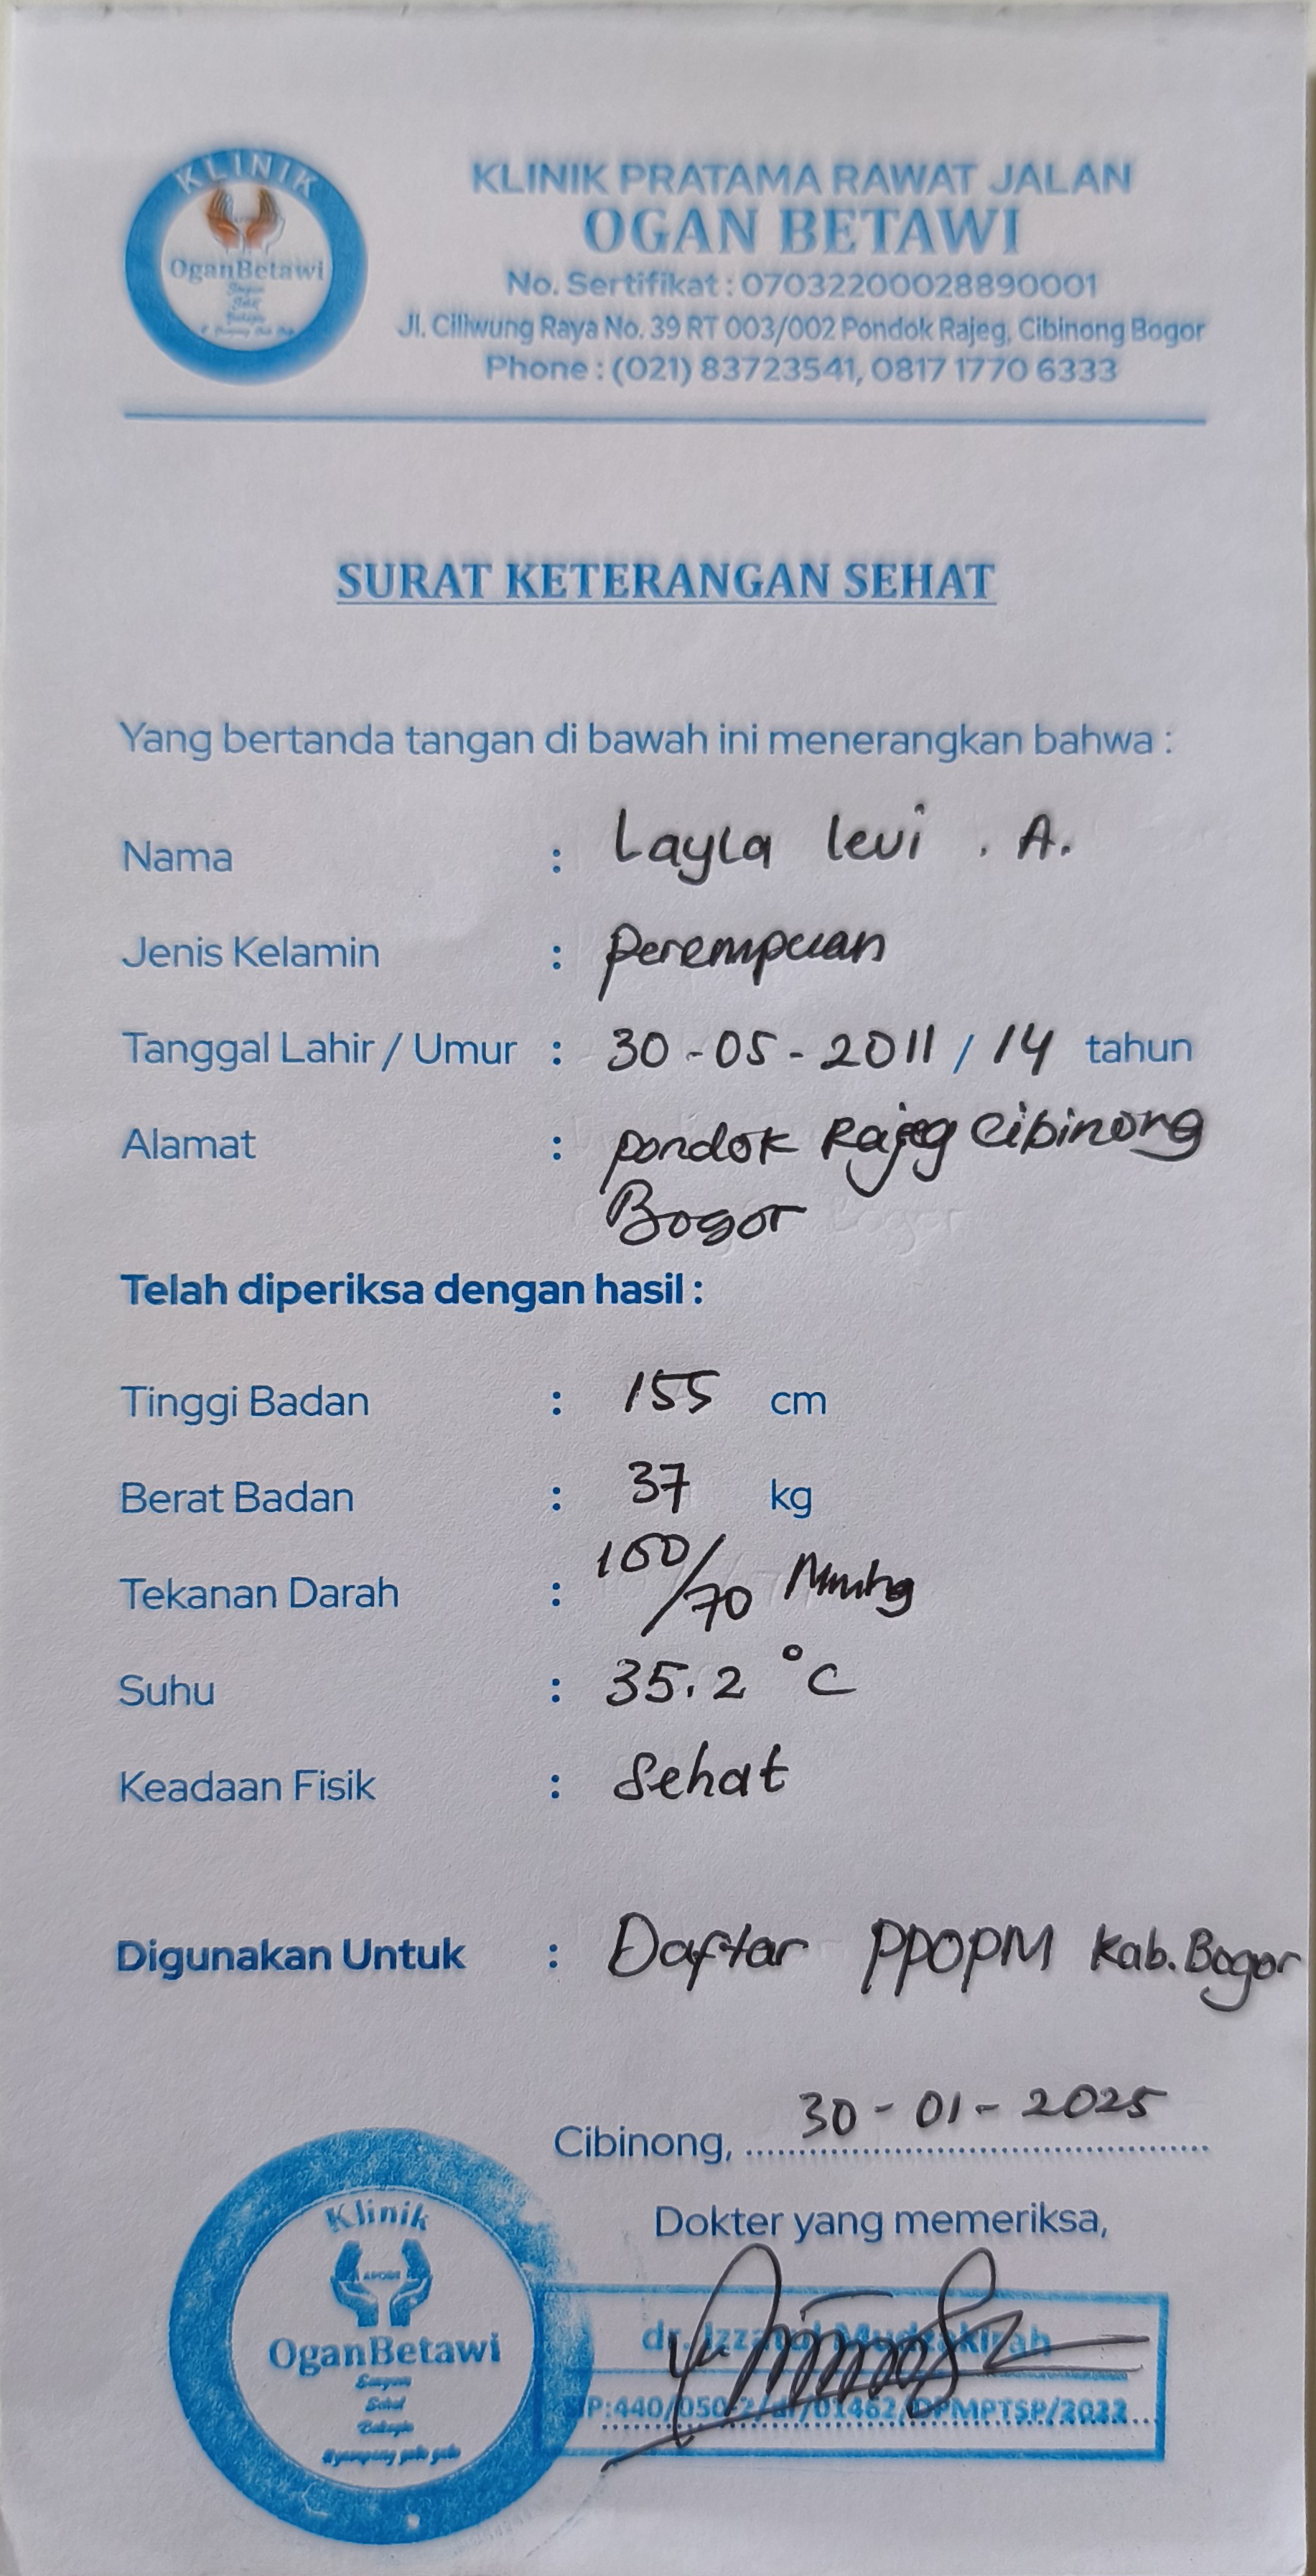 KLINIK
OganBetawi
KLINIK PRATAMA RAWAT JALAN
OGAN BETAWI
No. Sertifikat : 07032200028890001
Jl. Ciliwung Raya No. 39 RT 003/002 Pondok Rajeg, Cibinong Bogor
Phone : (021) 83723541, 0817 1770 6333
SURAT KETERANGAN SEHAT
Yang bertanda tangan di bawah ini menerangkan bahwa :
Nama : Layla levi . A.
Jenis Kelamin : Perempuan
Tanggal Lahir / Umur : 30 - 05 - 2011 / 14 tahun
Alamat : pondok Rajeg Cibinong
Bogor
Telah diperiksa dengan hasil :
Tinggi Badan : 155 cm
Berat Badan : 37 kg
Tekanan Darah : 100/70 Mmhg
Suhu : 35.2 °C
Keadaan Fisik : Sehat
Digunakan Untuk : Daftar PPOPM Kab. Bogor
Cibinong, 30 - 01 - 2025
Dokter yang memeriksa,
Klinik
OganBetawi
Sehat
dr. Izzatul Mudzakirah
SIP:440/050-2/dr/01462/DPMPTSP/2022